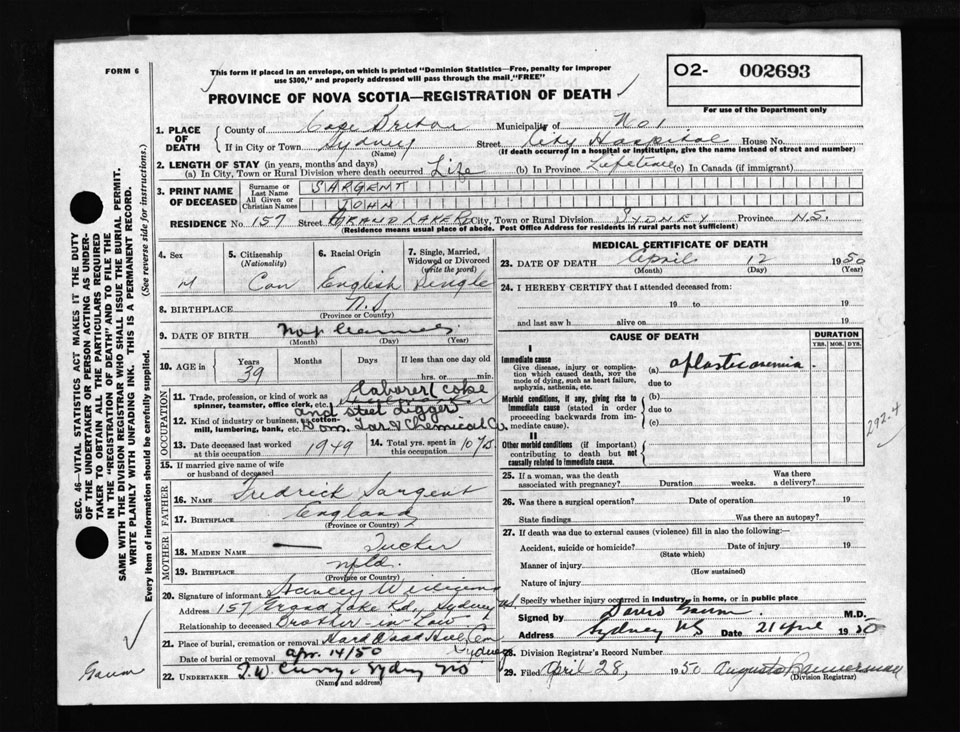 FORM 6
This form if placed in an envelope, on which is printed "Dominion Statistics—Free, penalty for improper
use $300," and properly addressed will pass through the mail, "FREE"
O2- 002693
For use of the Department only
PROVINCE OF NOVA SCOTIA—REGISTRATION OF DEATH
1. PLACE OF DEATH
County of Cape Breton Municipality of No 1
If in City or Town Sydney Street City Hospital House No.
(Name) (If death occurred in a hospital or institution, give the name instead of street and number)
2. LENGTH OF STAY (in years, months and days)
(a) In City, Town or Rural Division where death occurred Life (b) In Province Lifetime (c) In Canada (if immigrant)
3. PRINT NAME OF DECEASED
Surname or Last Name SARGENT
All Given or Christian Names JOHN
RESIDENCE No 157 Street GRAND LAKE Rd City, Town or Rural Division SYDNEY Province N.S.
(Residence means usual place of abode. Post Office Address for residents in rural parts not sufficient)
4. Sex 5. Citizenship (Nationality) 6. Racial Origin 7. Single, Married, Widowed or Divorced (write the word)
M Can English Single
8. BIRTHPLACE N.S
(Province or Country)
9. DATE OF BIRTH Not
(Month) (Day) (Year)
10. AGE in Years Months Days If less than one day old
39 hrs. or min.
OCCUPATION
11. Trade, profession, or kind of work as spinner, teamster, office clerk, etc. Laborer (coke
and steel digger
12. Kind of industry or business, as cotton-mill, lumbering, bank, etc. Dom. Tar & Chemical Co
13. Date deceased last worked at this occupation 1949 14. Total yrs. spent in this occupation 10 yrs.
15. If married give name of wife or husband of deceased
FATHER
16. NAME Fredrick Sargent
17. BIRTHPLACE England
(Province or Country)
MOTHER
18. MAIDEN NAME — Tucker
19. BIRTHPLACE Nfld.
(Province or Country)
20. Signature of informant Stanley
Address 157 Grand Lake Rd, Sydney NS
Relationship to deceased Brother-in-Law
21. Place of burial, cremation or removal Hardwood Hill Cem Sydney
Date of burial or removal Apr. 14/50
22. UNDERTAKER T.W Curry, Sydney NS
(Name and address)
MEDICAL CERTIFICATE OF DEATH
23. DATE OF DEATH April 12 1950
(Month) (Day) (Year)
24. I HEREBY CERTIFY that I attended deceased from:
19 to 19
and last saw h alive on 19
CAUSE OF DEATH DURATION
YRS. MOS. DYS.
I
Immediate cause
Give disease, injury or complication which caused death, NOT the mode of dying, such as heart failure, asphyxia, asthenia, etc.
(a) aplastic anemia.
due to
Morbid conditions, if any, giving rise to immediate cause (stated in order proceeding backwards from immediate cause).
(b)
due to
(c)
II
Other morbid conditions (if important) contributing to death but not causally related to immediate cause.
292-4
25. If a woman, was the death associated with pregnancy? Duration weeks. Was there a delivery?
26. Was there a surgical operation? Date of operation 19
State findings Was there an autopsy?
27. If death was due to external causes (violence) fill in also the following:—
Accident, suicide or homicide? Date of injury 19
(State which)
Manner of injury
(How sustained)
Nature of injury
Specify whether injury occurred in industry, in home, or in public place
Signed by David Gaum M.D.
Address Sydney NS Date 21 April 1950
28. Division Registrar's Record Number
29. Filed April 28, 1950 Bannerman
(Division Registrar)
SEC. 46—VITAL STATISTICS ACT MAKES IT THE DUTY
OF THE UNDERTAKER OR PERSON ACTING AS UNDERTAKER TO OBTAIN ALL THE PARTICULARS REQUIRED
IN THE "REGISTRATION OF DEATH" AND TO FILE THE
SAME WITH THE DIVISION REGISTRAR WHO SHALL ISSUE THE BURIAL PERMIT.
WRITE PLAINLY WITH UNFADING INK. THIS IS A PERMANENT RECORD.
Every item of information should be carefully supplied. (See reverse side for instructions.)
Gaum